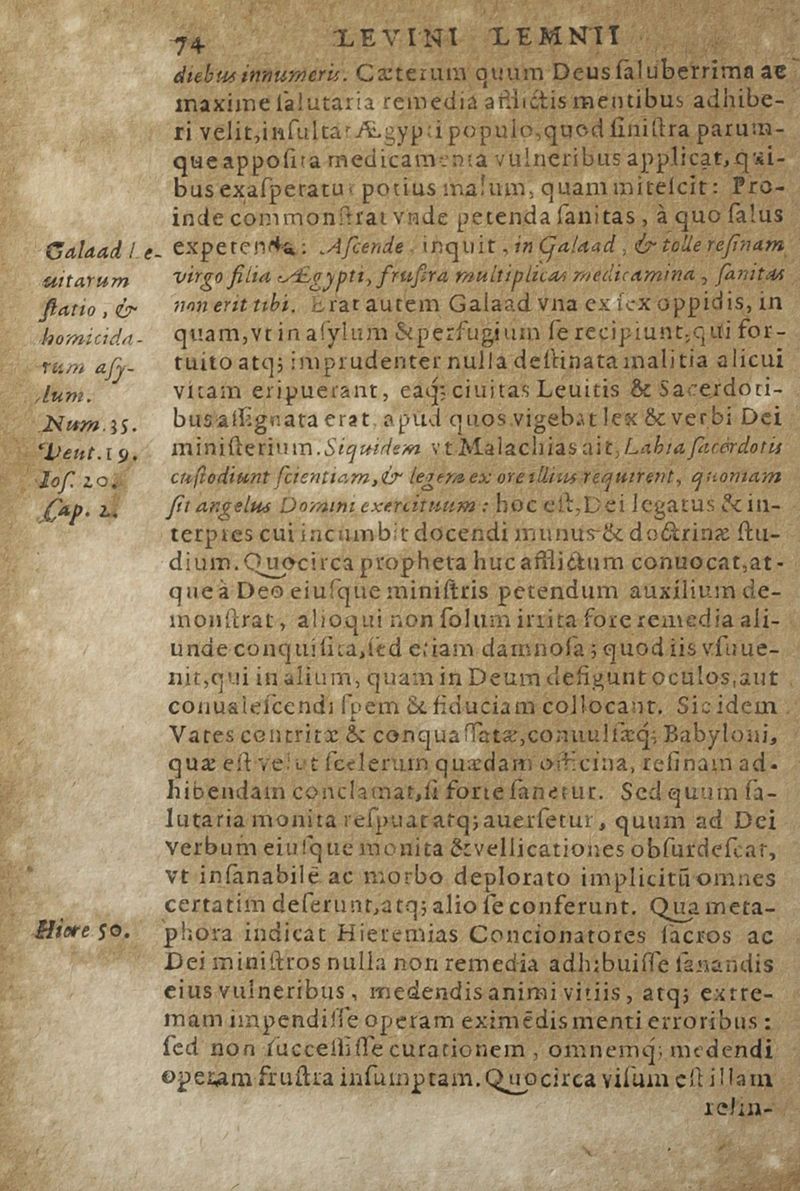 74 LEVINI LEMNII
diebus innumeris. Cæterum quum Deus saluberrima ac
maxime salutaria remedia afflictis mentibus adhibe-
ri velit, insultat Ægypti populo, quod sinistra parum-
que apposita medicamenta vulneribus applicat, qui-
bus exasperatur potius malum, quam mitescit: Pro-
inde commonstrat vnde petenda sanitas, à quo salus
expetenda: Ascende inquit, in Galaad, & tolle resinam
virgo filia Ægypti, frustra multiplicas medicamina, sanitas
non erit tibi. Erat autem Galaad vna ex sex oppidis, in
quam, vt in asylum & perfugium se recipiunt, qui for-
tuito atq; imprudenter nulla destinata malitia alicui
vitam eripuerant, eaq; ciuitas Leuitis & Sacerdoti-
bus assignata erat, apud quos vigebat lex & verbi Dei
ministerium. Siquidem vt Malachias ait, Labia sacerdotis
custodiunt scientiam, & legem ex ore illius requirent, quoniam
sit angelus Domini exercituum: hoc est, Dei legatus & in-
terpres cui incumbit docendi munus & doctrinæ stu-
dium. Quocirca propheta huc afflictum conuocat, at-
que à Deo eiusque ministris petendum auxilium de-
monstrat, alioqui non solum irrita fore remedia ali-
unde conquisita, sed etiam damnosa; quod iis vsuue-
nit, qui in alium, quam in Deum defigunt oculos, aut
conualescendi spem & fiduciam collocant. Sic idem
Vates contritæ & conquassatæ, conuulsæq; Babyloni,
quæ est velut scelerum quædam officina, resinam ad-
hibendam conclamat, si forte sanetur. Sed quum sa-
lutaria monita respuat atq; auersetur, quum ad Dei
verbum eiusque monita & vellicationes obsurdescat,
vt insanabile ac morbo deplorato implicitū omnes
certatim deserunt, atq; alio se conferunt. Qua meta-
phora indicat Hieremias Concionatores sacros ac
Dei ministros nulla non remedia adhibuisse sanandis
eius vulneribus, medendis animi vitiis, atq; extre-
mam impendisse operam eximēdis menti erroribus:
sed non successisse curationem, omnemq; medendi
operam frustra insumptam. Quocirca visum est illam
relin-
Galaad Le-
uitarum
statio, &
homicida-
rum asy-
lum.
Num. 35.
Deut. 19.
Ios. 20.
Cap. 2.
Hiere 50.